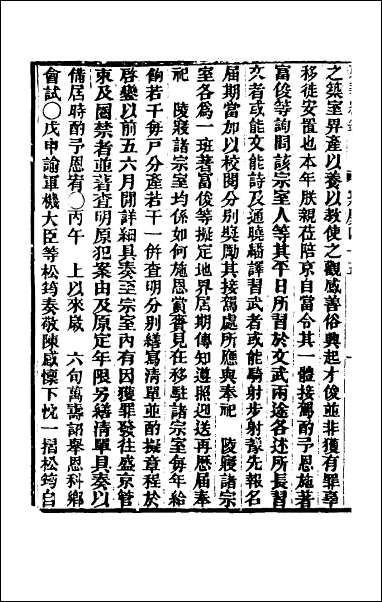 之築室畀產以養以教使之觀感善俗興起才俊並非獲有罪辜
移徙安置也本年 朕親莅陪京自當令其一體接駕酌予恩施著
富俊等詢問該宗室人等其平日所習於文武兩途各述所長習
文者或能文能詩及通曉繙譯習武者或能騎射步射豫先報名
屆期當加以校閱分別獎勵其接駕處所應與奉祀 陵寢諸宗
室各為一班著富俊等擬定地界屆期傳知遵照迎送再歷屆奉
祀 陵寢諸宗室均係如何施恩賞賚見在移駐諸宗室每年給
餉若干每戶分產若干一併查明分別繕寫清單並酌擬章程於
啓鑾以前五六月開詳細具奏至宗室內有因獲罪發往盛京管
束及圈禁者並著查明原犯案由及原定年限另繕清單具奏以
備屆時酌予恩宥○丙午 上以來歲 六旬萬壽詔舉恩科鄉
會試○戊申諭軍機大臣等松筠奏敬陳感懷下忱一摺松筠自